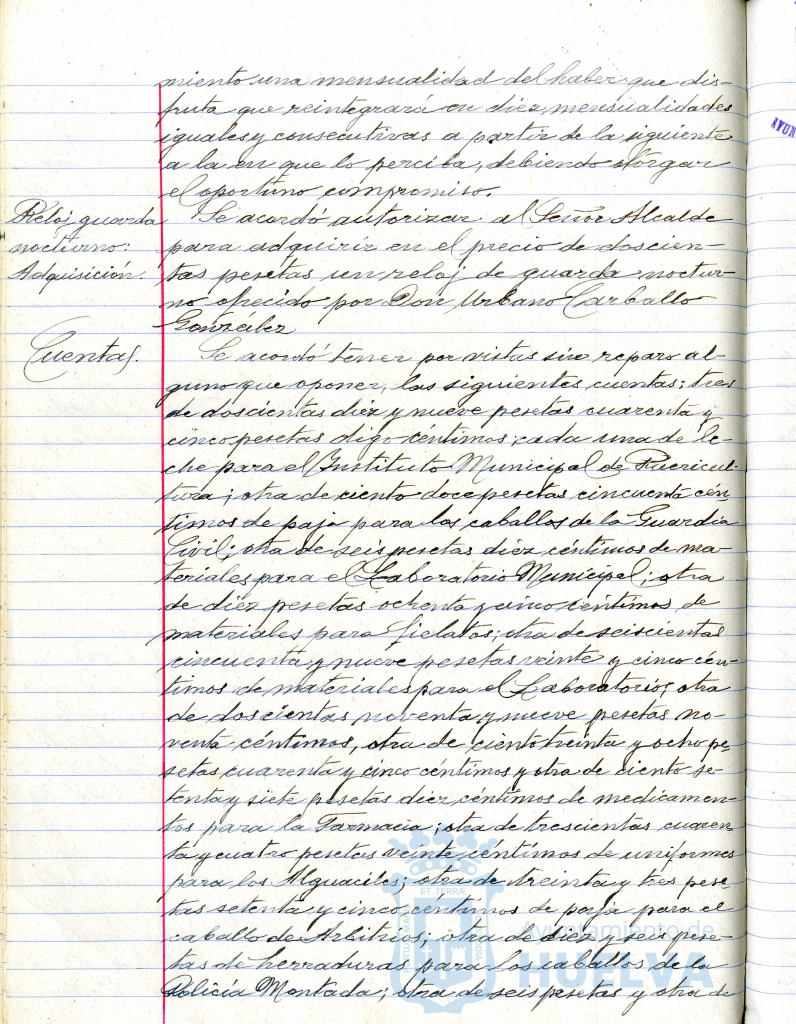 miento una mensualidad del haber que dis-
fruta que reintegrará en diez mensualidades
iguales y consecutivas a partir de la siguiente
a la en que lo perciba, debiendo otorgar
el oportuno compromiso.
Reloj guarda
nocturno:
Adquisición.
Se acordó autorizar al Señor Alcalde
para adquirir en el precio de doscien-
tas pesetas un reloj de guarda noctur-
no ofrecido por Don Urbano Carballo
González
Cuentas.
Se acordó tener por vistas sin reparo al-
guno que oponer, las siguientes cuentas: tres
de doscientas diez y nueve pesetas cuarenta y
cinco pesetas digo céntimos, cada una de le-
che para el Instituto Municipal de Puericul-
tura; otra de ciento doce pesetas cincuenta cén-
timos de paja para los caballos de la Guardia
Civil; otra de seis pesetas diez céntimos de ma-
teriales para el Laboratorio Municipal; otra
de diez pesetas ochenta y cinco céntimos de
materiales para fielatos; otra de seiscientas
cincuenta y nueve pesetas veinte y cinco cén-
timos de materiales para el Laboratorio; otra
de doscientas noventa y nueve pesetas no-
venta céntimos, otra de ciento treinta y ocho pe-
setas cuarenta y cinco céntimos y otra de ciento se-
tenta y siete pesetas diez céntimos de medicamen-
tos para la Farmacia; otra de trescientas cuaren-
ta y cuatro pesetas veinte céntimos de uniformes
para los Alguaciles; otra de treinta y tres pese-
tas setenta y cinco céntimos de paja para el
caballo de Arbitrios; otra de diez y seis pese-
tas de herraduras para los caballos de la
Policía Montada; otra de seis pesetas y otra de
AYUN
ET TERRÆ
Ayuntamiento de
HUELVA